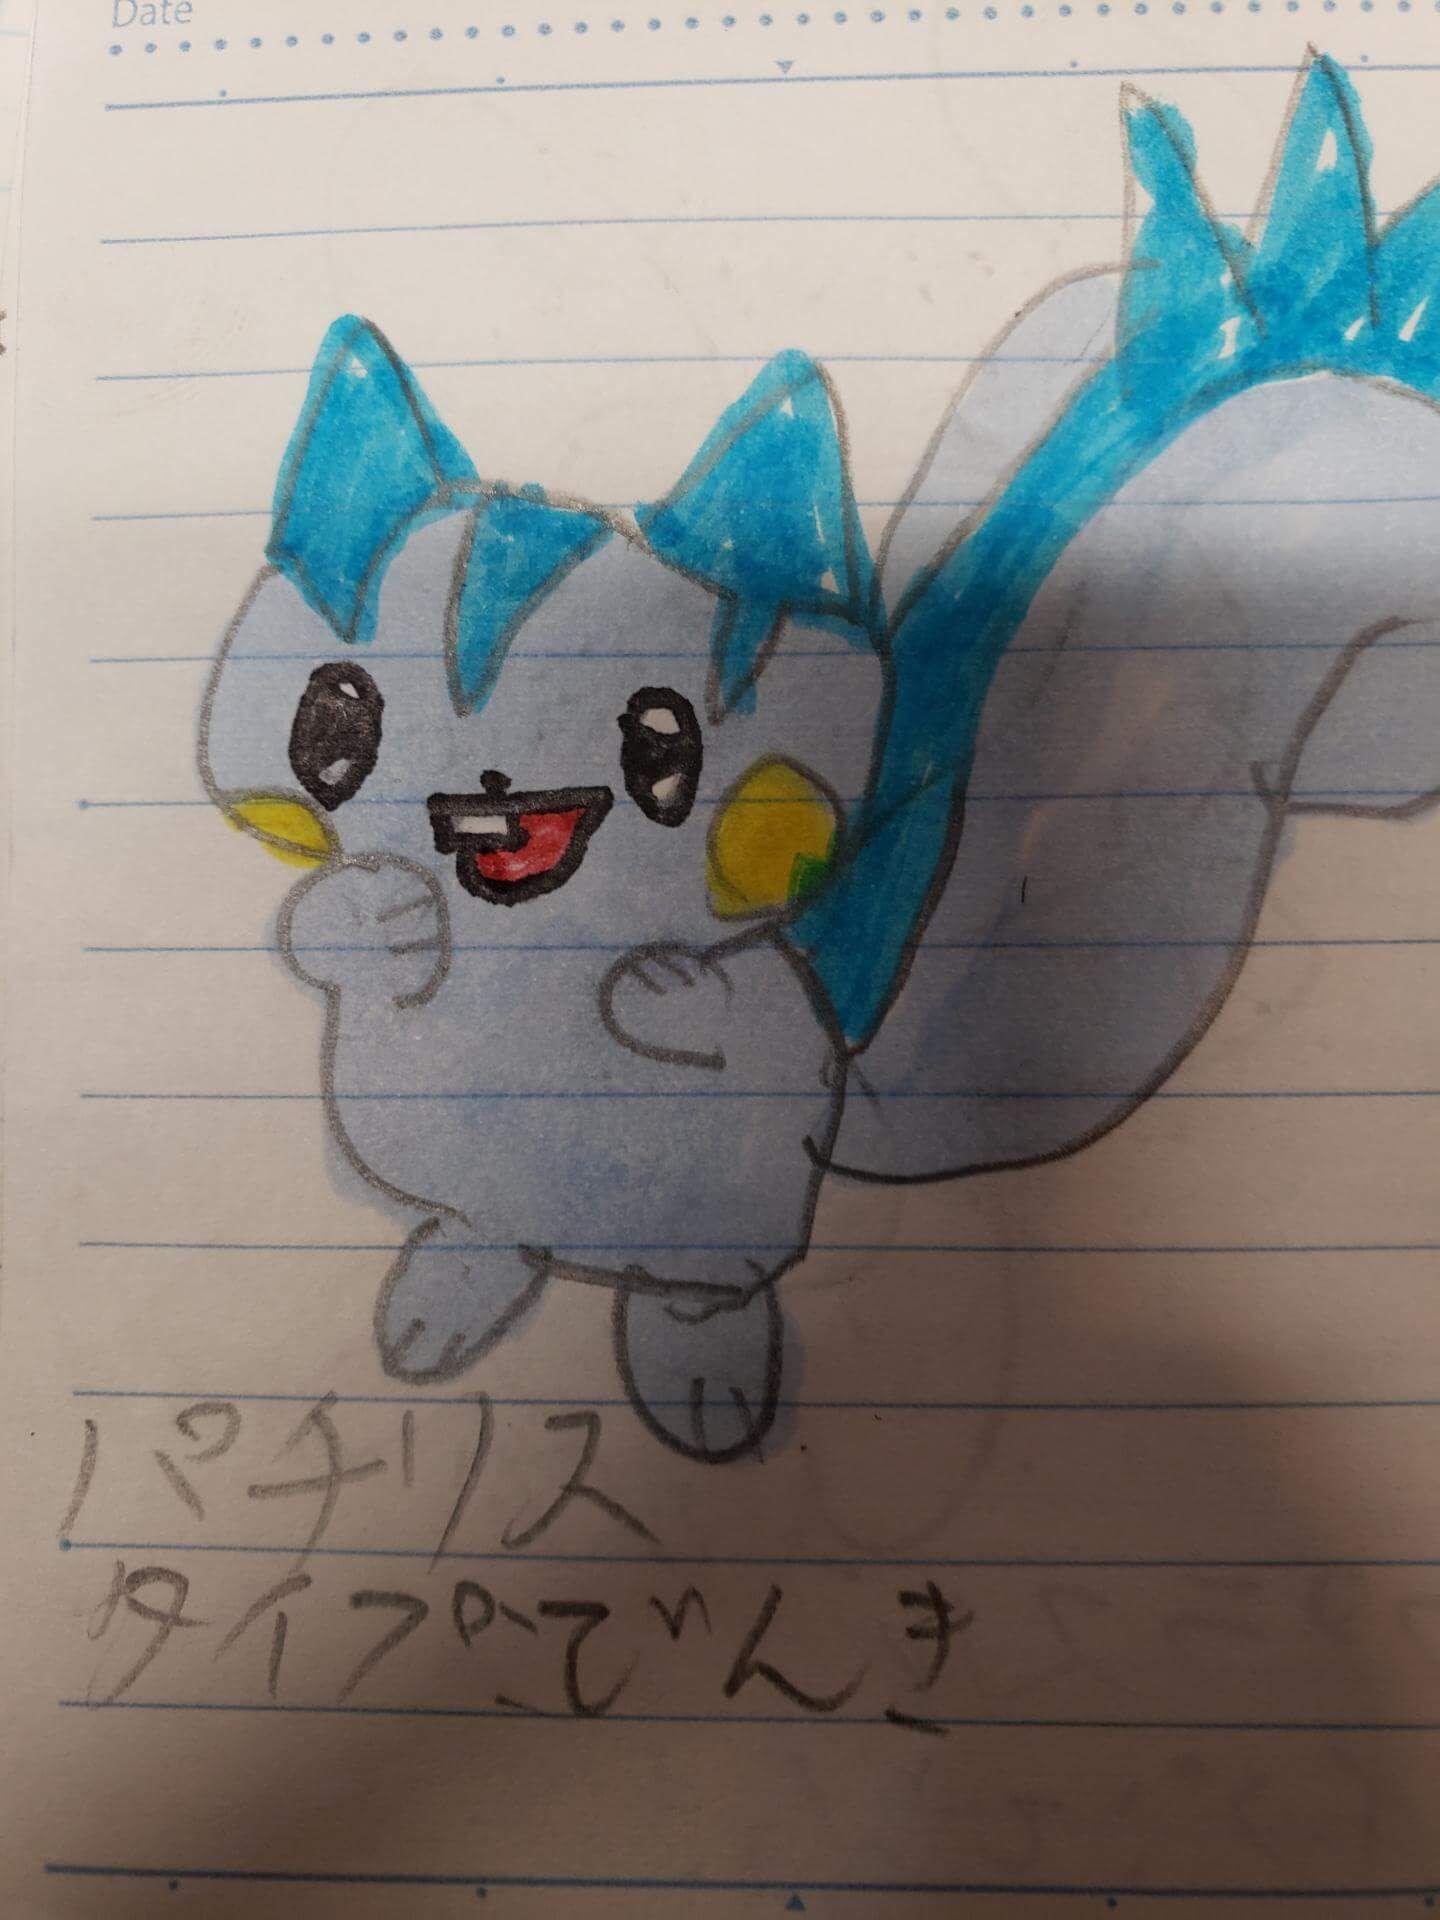 Date
パチリス
タイプでんき